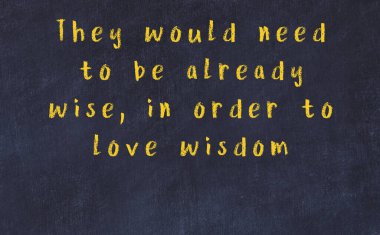 They would need
to be already
wise, in order to
love wisdom